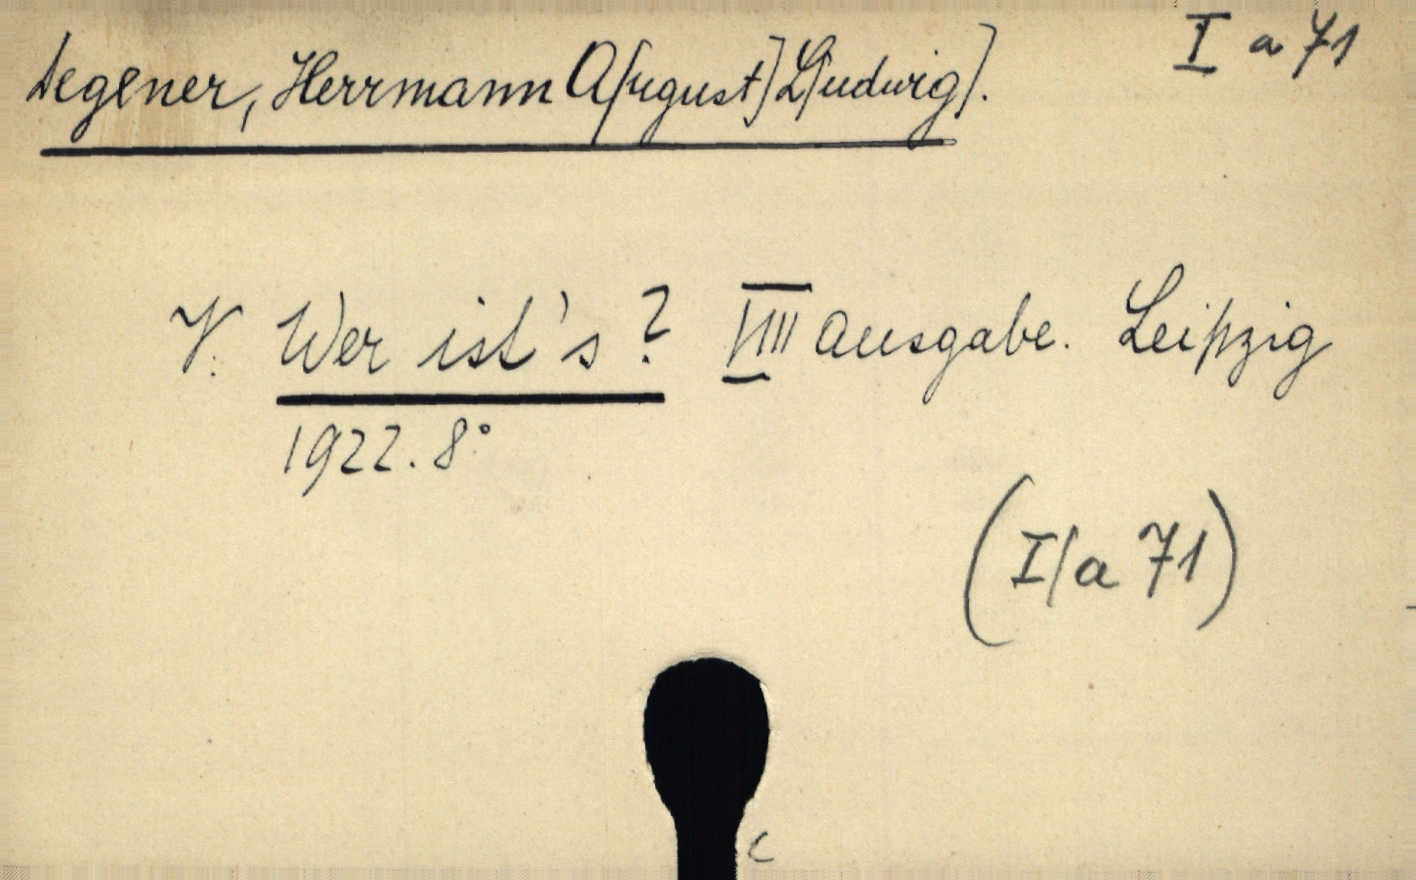 I a 71
Degener, Herrmann A[ugust] L[udwig].
V. Wer ist's? VIII Ausgabe. Leipzig
1922. 8°
(I/a 71)
c